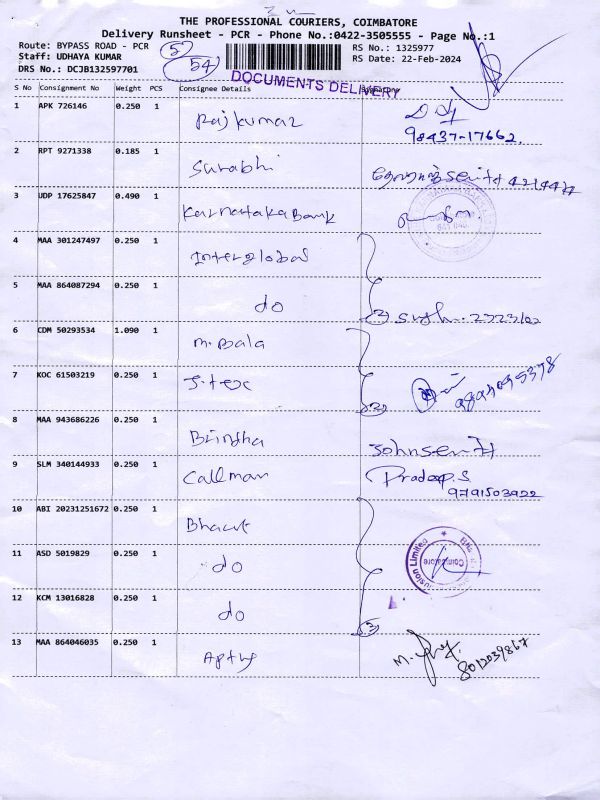 THE PROFESSIONAL COURIERS, COIMBATORE
Delivery Runsheet - PCR - Phone No.:0422-3505555 - Page No.:1
Route: BYPASS ROAD - PCR
RS No.: 1325977
Staff: UDHAYA KUMAR
54
RS Date: 22-Feb-2024
DRS No.: DCJB132597701
DOCUMENTS DELIVERY
S No Consignment No Weight PCS Consignee Details
1 APK 726146 0.250 1 Rajkumar
98437-17662
2 RPT 9271338 0.185 1 Surabhi
3 UDP 17625847 0.490 1 Karnataka Bank
4 MAA 301247497 0.250 1 Interglobal
5 MAA 864087294 0.250 1 do
6 CDM 50293534 1.090 1 M. Bala
7 KOC 61503219 0.250 1
8 MAA 943686226 0.250 1 Brindha
9 SLM 340144933 0.250 1 Callman Pradeep.S
9791503922
10 ABI 20231251672 0.250 1 Bharat
11 ASD 5019829 0.250 1 do
Coimbatore
12 KCM 13016828 0.250 1 do
13 MAA 864046035 0.250 1
8012039867